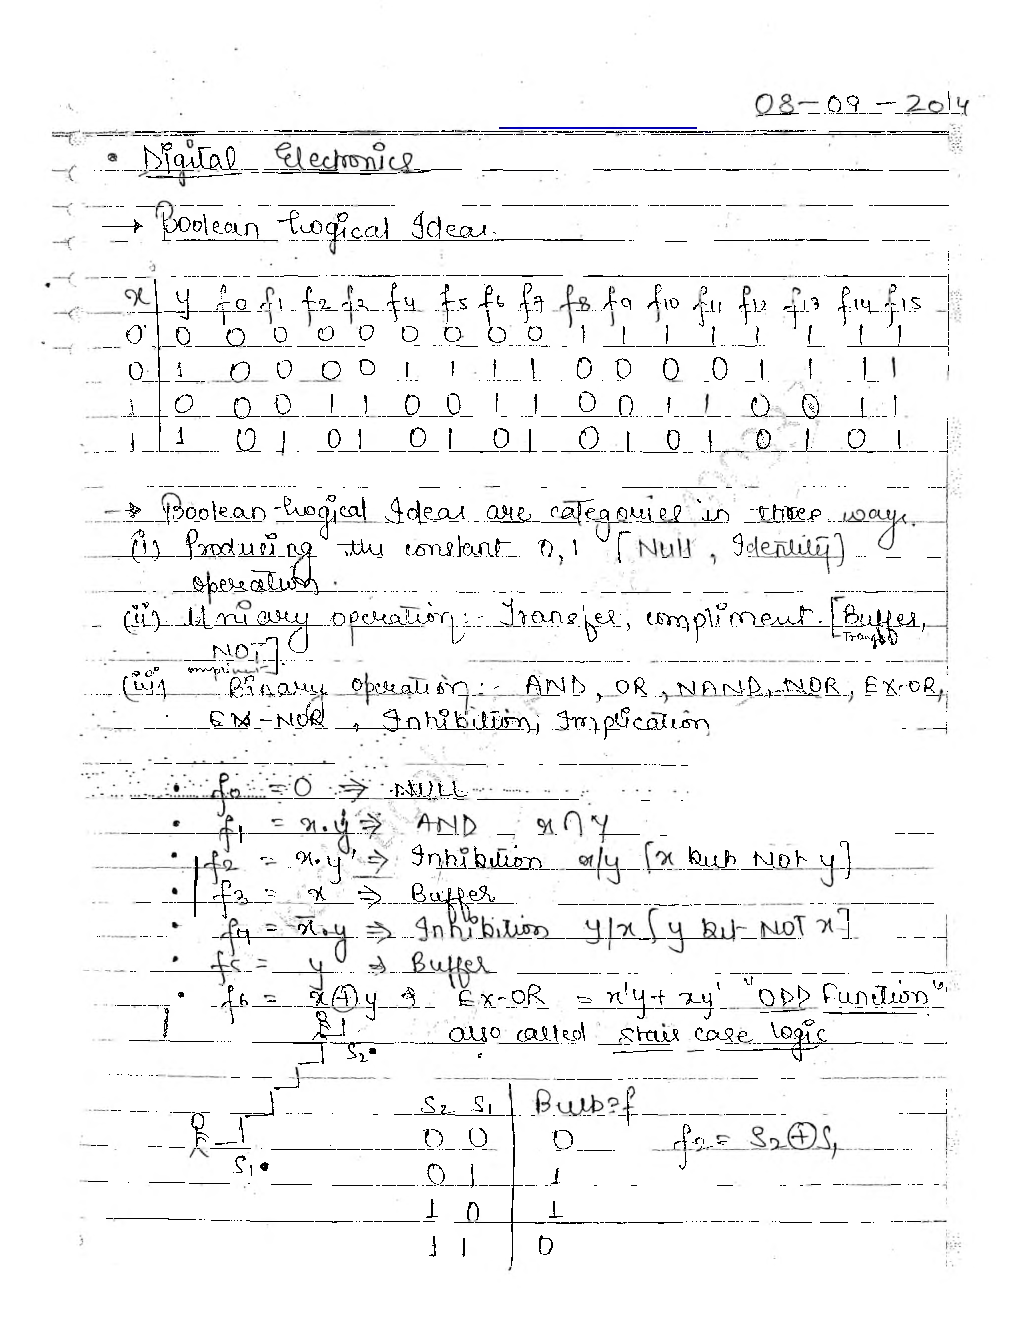 08-09-2014
• Digital Electronics
→ Boolean Logical Ideas.
x y f0 f1 f2 f2 f4 f5 f6 f7 f8 f9 f10 f11 f12 f13 f14 f15
0 0 0 0 0 0 0 0 0 0 1 1 1 1 1 1 1 1
0 1 0 0 0 0 1 1 1 1 0 0 0 0 1 1 1 1
1 0 0 0 1 1 0 0 1 1 0 0 1 1 0 0 1 1
1 1 0 1 0 1 0 1 0 1 0 1 0 1 0 1 0 1
→ Boolean Logical Ideas are categories in three ways.
(i) Producing the constant 0,1 [Null, Identity]
operation.
(ii) Uniary operation:- Transfer, compliment. [Buffer,
Transfer
NOT].
compliment
(iii) Binary operation:- AND, OR, NAND, NOR, EX-OR,
EX-NOR, Inhibition, Implication
• f0 = 0 ⇒ NULL
• f1 = x.y ⇒ AND x∩y
• f2 = x.y' ⇒ Inhibition x/y [x but Not y]
• f3 = x ⇒ Buffer
• f4 = x̄.y ⇒ Inhibition y/x [y but NOT x]
• f5 = y ⇒ Buffer
• f6 = x⊕y ⇒ EX-OR = x'y + xy' "ODD Function"
also called stair case logic
S2
S2 S1 Bulb=f
0 0 0 f2 = S2⊕S1
S1
0 1 1
1 0 1
1 1 0